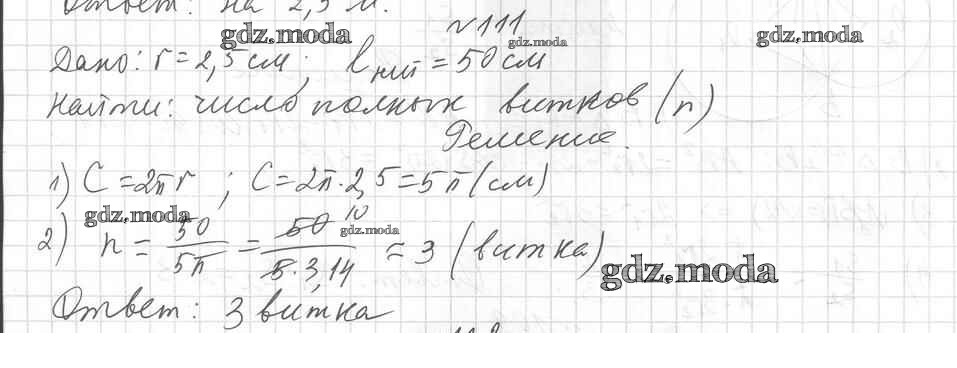 Ответ: на 2,5 м.
№111
gdz.moda gdz.moda gdz.moda
Дано: r = 2,5 см; lнит = 50 см
Найти: число полных витков (n)
Решение.
1) C = 2πr ; C = 2π · 2,5 = 5π (см)
gdz.moda gdz.moda
2) n = 50/5π = 50 10/5 · 3,14 ≈ 3 (витка)
gdz.moda
Ответ: 3 витка